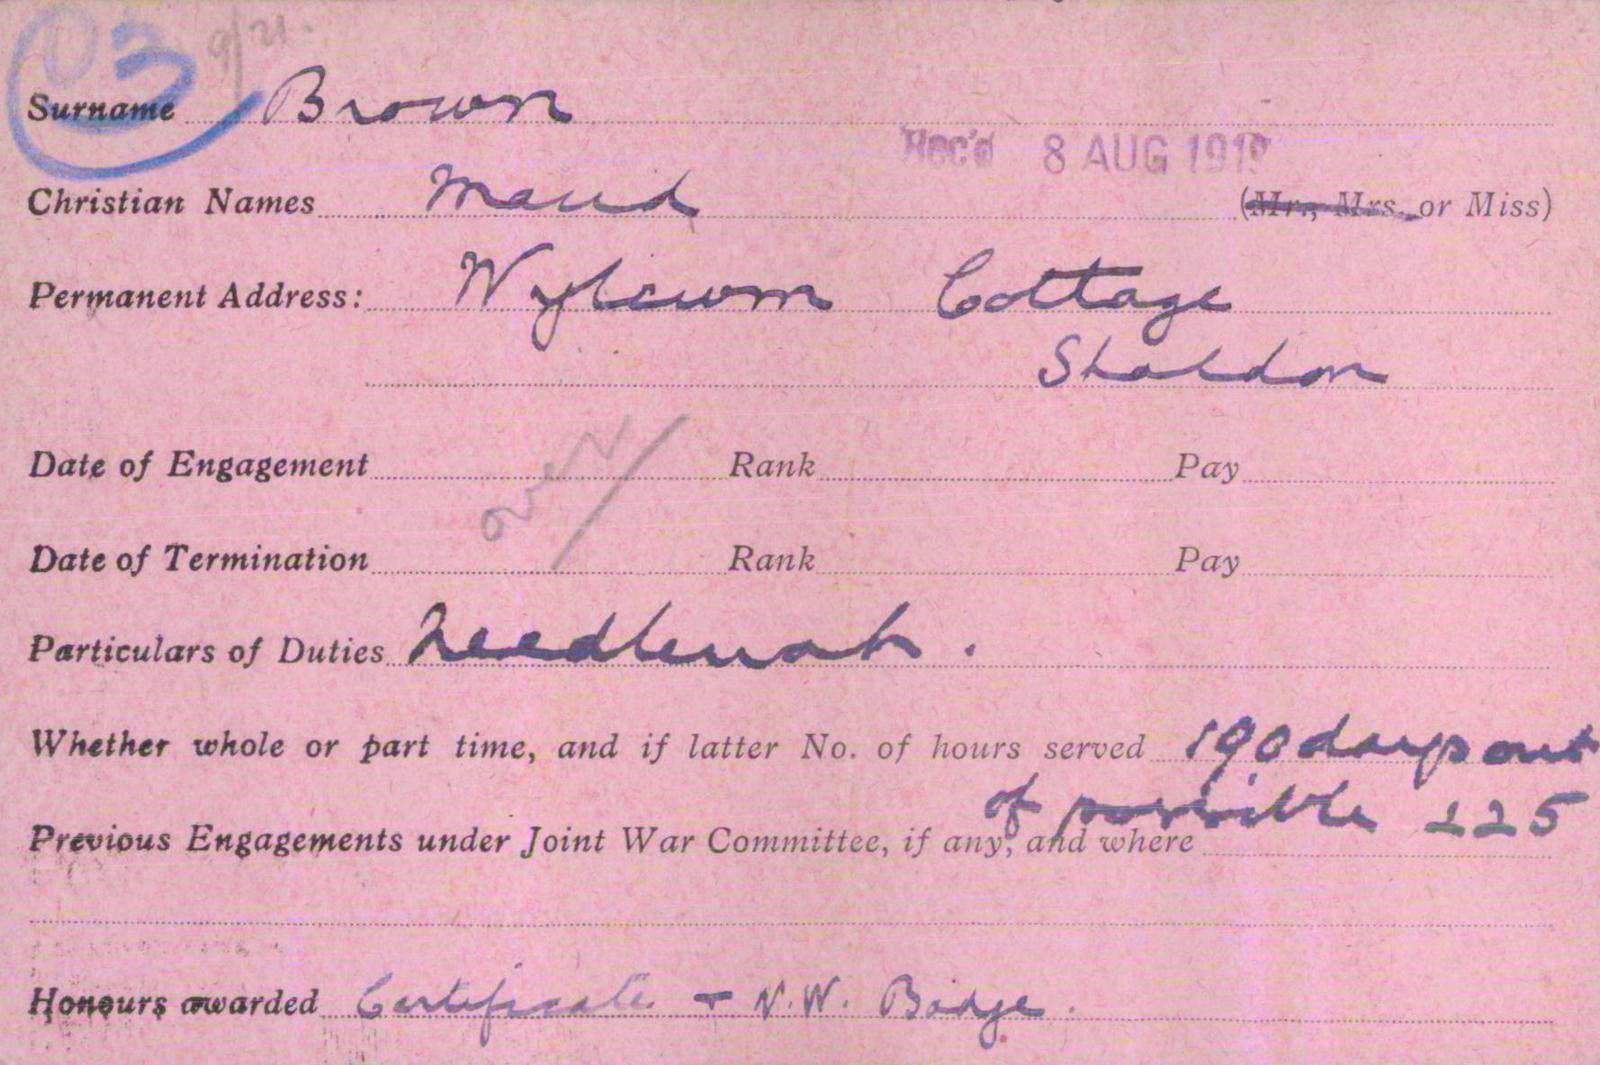 03 9/21.
Surname Brown
Rec'd 8 AUG 1919
Christian Names Maud (Mr., Mrs. or Miss)
Permanent Address: Cottage
Shaldon
Date of Engagement Rank Pay
over
Date of Termination Rank Pay
Particulars of Duties Needlework.
Whether whole or part time, and if latter No. of hours served 190 days out
of possible 225
Previous Engagements under Joint War Committee, if any, and where
Honours awarded Certificate + V.W. Badge.